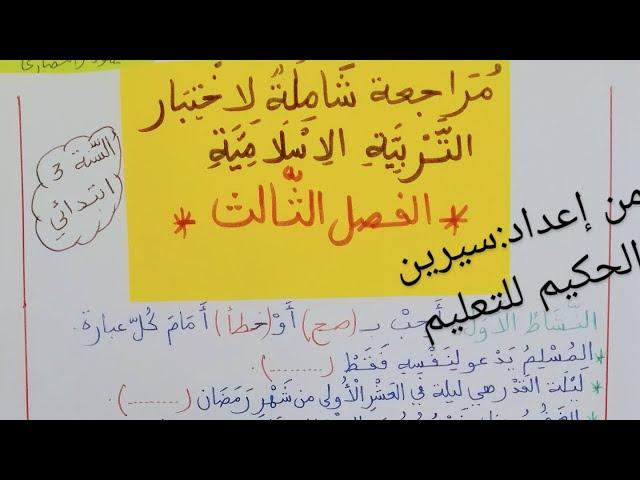 مُرَاجعة شَامِلَةٌ لاخْتِبَار
التَّرْبِيَّةِ الِاسْلَامِيَّةِ
* الفصل الثّالث *
السَّنة 3
ابتدائي
من إعداد:سيرين
الحكيم للتعليم
النَّشَاطُ الأول: أَجِبْ بـ (صح) أَوْ (خطأ) أَمَامَ كُلّ عبارة.
* المُسْلِمُ يَدْعو لِنَفْسِهِ فَقَطْ (.........)
* لَيْلَة القَدْر هي ليلة في العَشْرِ الْأُولَى من شَهْرِ رَمَضَان (.........).